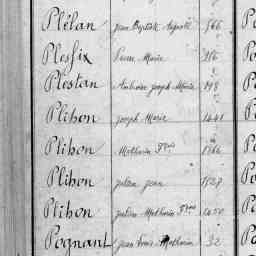 Plélan Jean Baptiste Auguste 566
Plesfix Pierre Marie
Plestan Ambroise Joseph Marie
Plihon Joseph Marie 1441
Plihon Mathurin Fçois
Plihon Julien Jean 1527
Plihon Julien Mathurin Fçois 1450
Pognant Jean Louis Mathurin 32